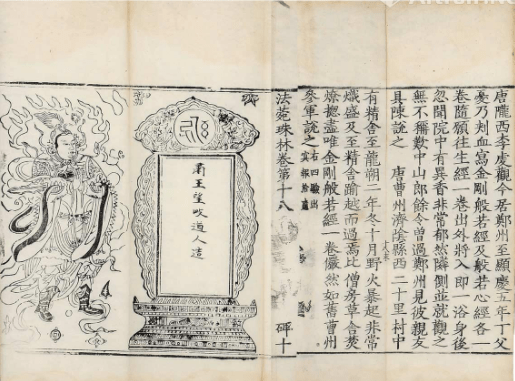 唐隴西李虔觀今居鄭州至顯慶五年丁父
憂乃刺血寫金剛般若經及般若心經各一
卷隨願往生經一卷出外將入即一浴身後
忽聞院中有異香非常郁然隣側並就觀之
無不稱歎中山郎餘令曾過鄭州見彼親友
具陳說之　唐曹州濟陰縣西二十里村中
有精舍至龍朔二年冬十月野火暴起非常
熾盛及至精舍踰越而過焉比僧房草舍焚
燎揔盡唯金剛般若經一卷儼然如舊曹州
參軍說之 右四驗出
冥報拾遺
法苑珠林卷第十八　碑十
王望道人造